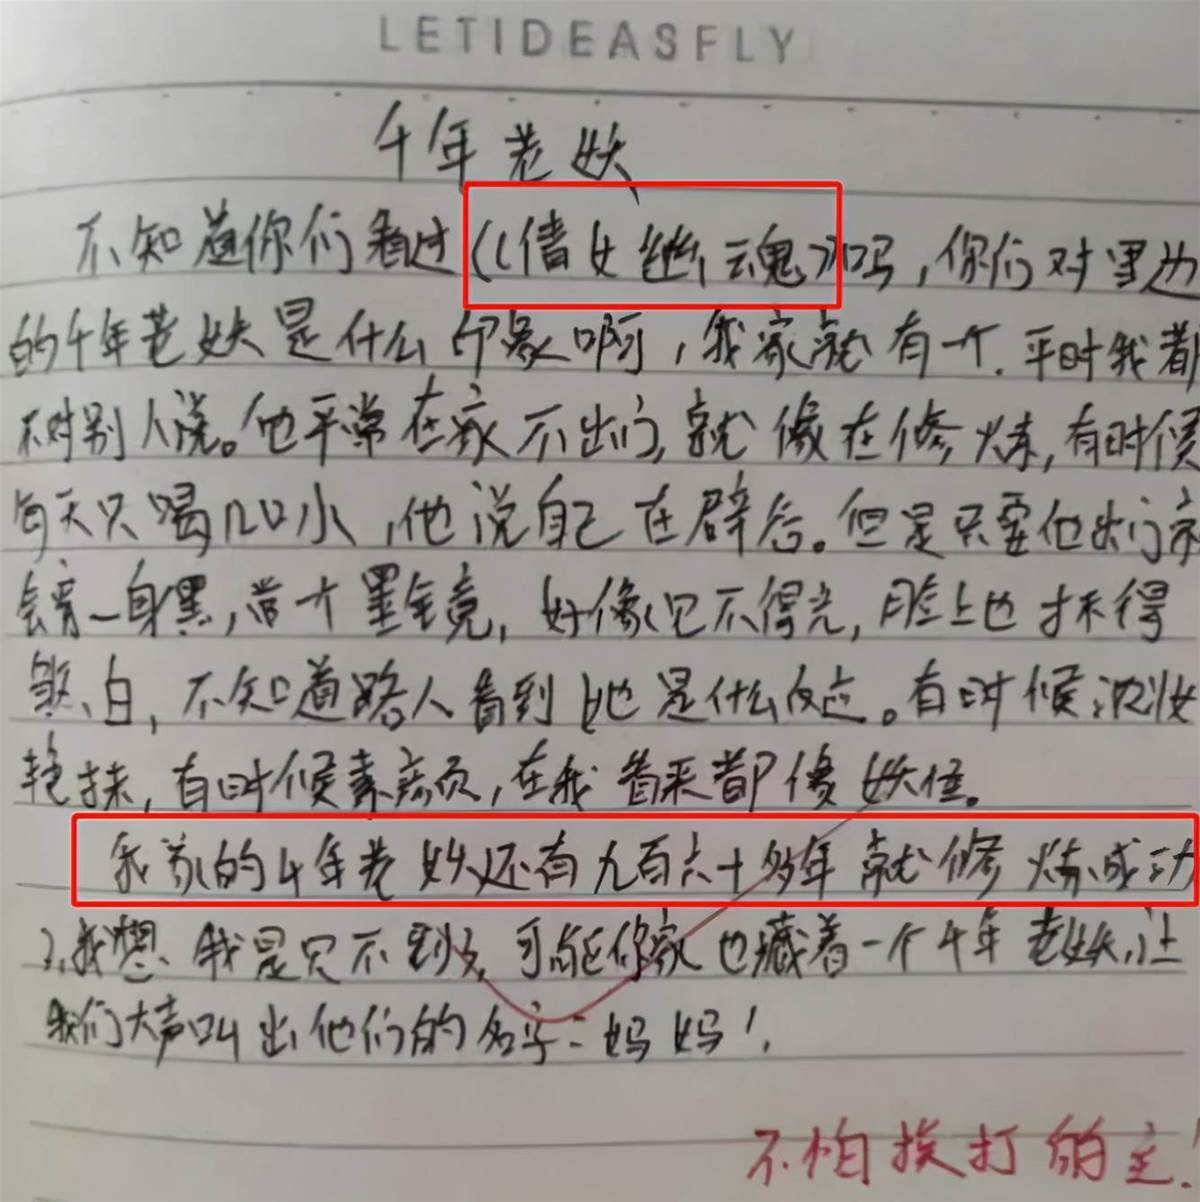 LETIDEASFLY
千年老妖
不知道你们看过《倩女幽魂》吗,你们对里边
的千年老妖是什么印象啊,我家就有一个.平时我都
不对别人说。他平常在家不出门,就像在修炼,有时候
每天只喝几口水,他说自己在辟谷。但是只要他出门就
会穿一身黑,带个墨镜,好像见不得光,脸上也抹得
煞白,不知道路人看到他是什么反应。有时候浓妆
艳抹,有时候素颜,在我看来都像妖怪。
我家的千年老妖还有九百六十多年就修炼成功
了,我想我是见不到了,可能你家也藏着一个千年老妖,让
我们大声叫出他们的名字:妈妈!
不怕挨打的主!